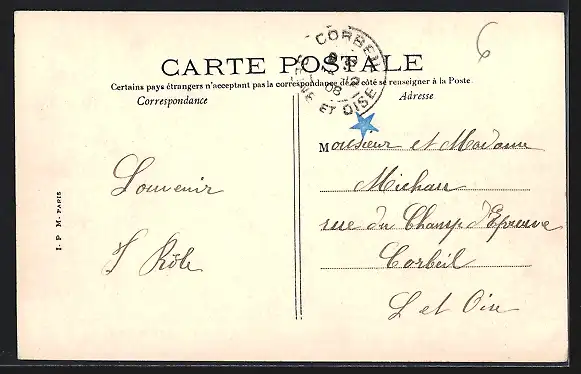 CORBEIL
ET OISE
08
6
CARTE POSTALE
Certains pays étrangers n'acceptant pas la correspondance de ce côté se renseigner à la Poste
Correspondance
Adresse
Souvenir
Monsieur et Madame
Michau
rue du Champ d'Epreuve
Corbeil
S et Oise
I. P. M. PARIS